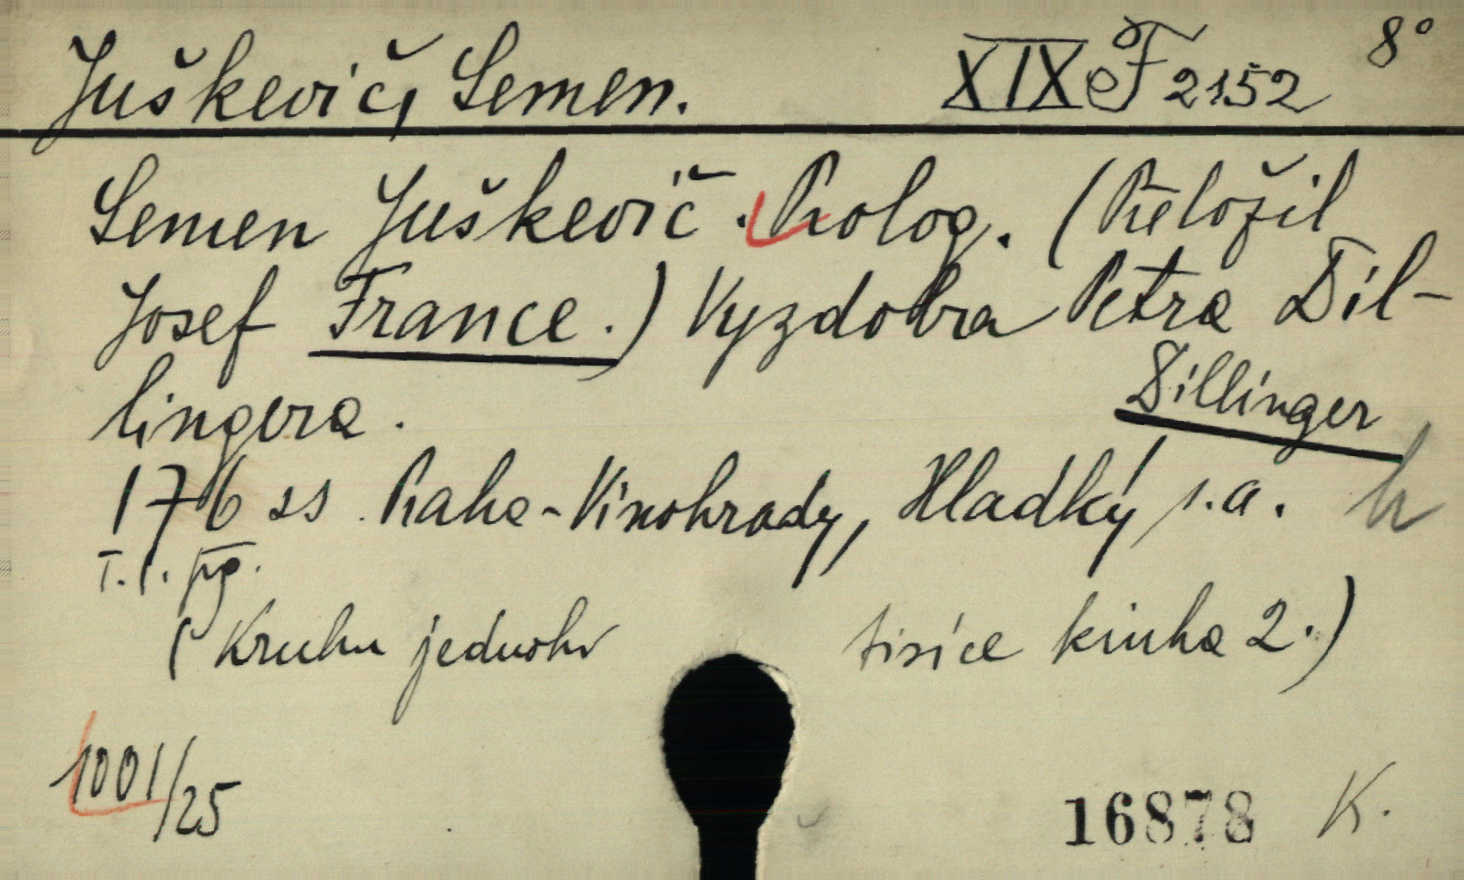 Juškevič, Semen. XIX e F 2152 8°
Semen Juškevič. Prolog. (Přeložil
Josef France.) Vyzdobra Petra Dil-
lingera. Dillinger
176 ss Praha-Vinohrady, Hladký s.a. h
T. l. pg.
(Kruhu jednoho tisíce kniha 2.)
1001/25
16878 K.